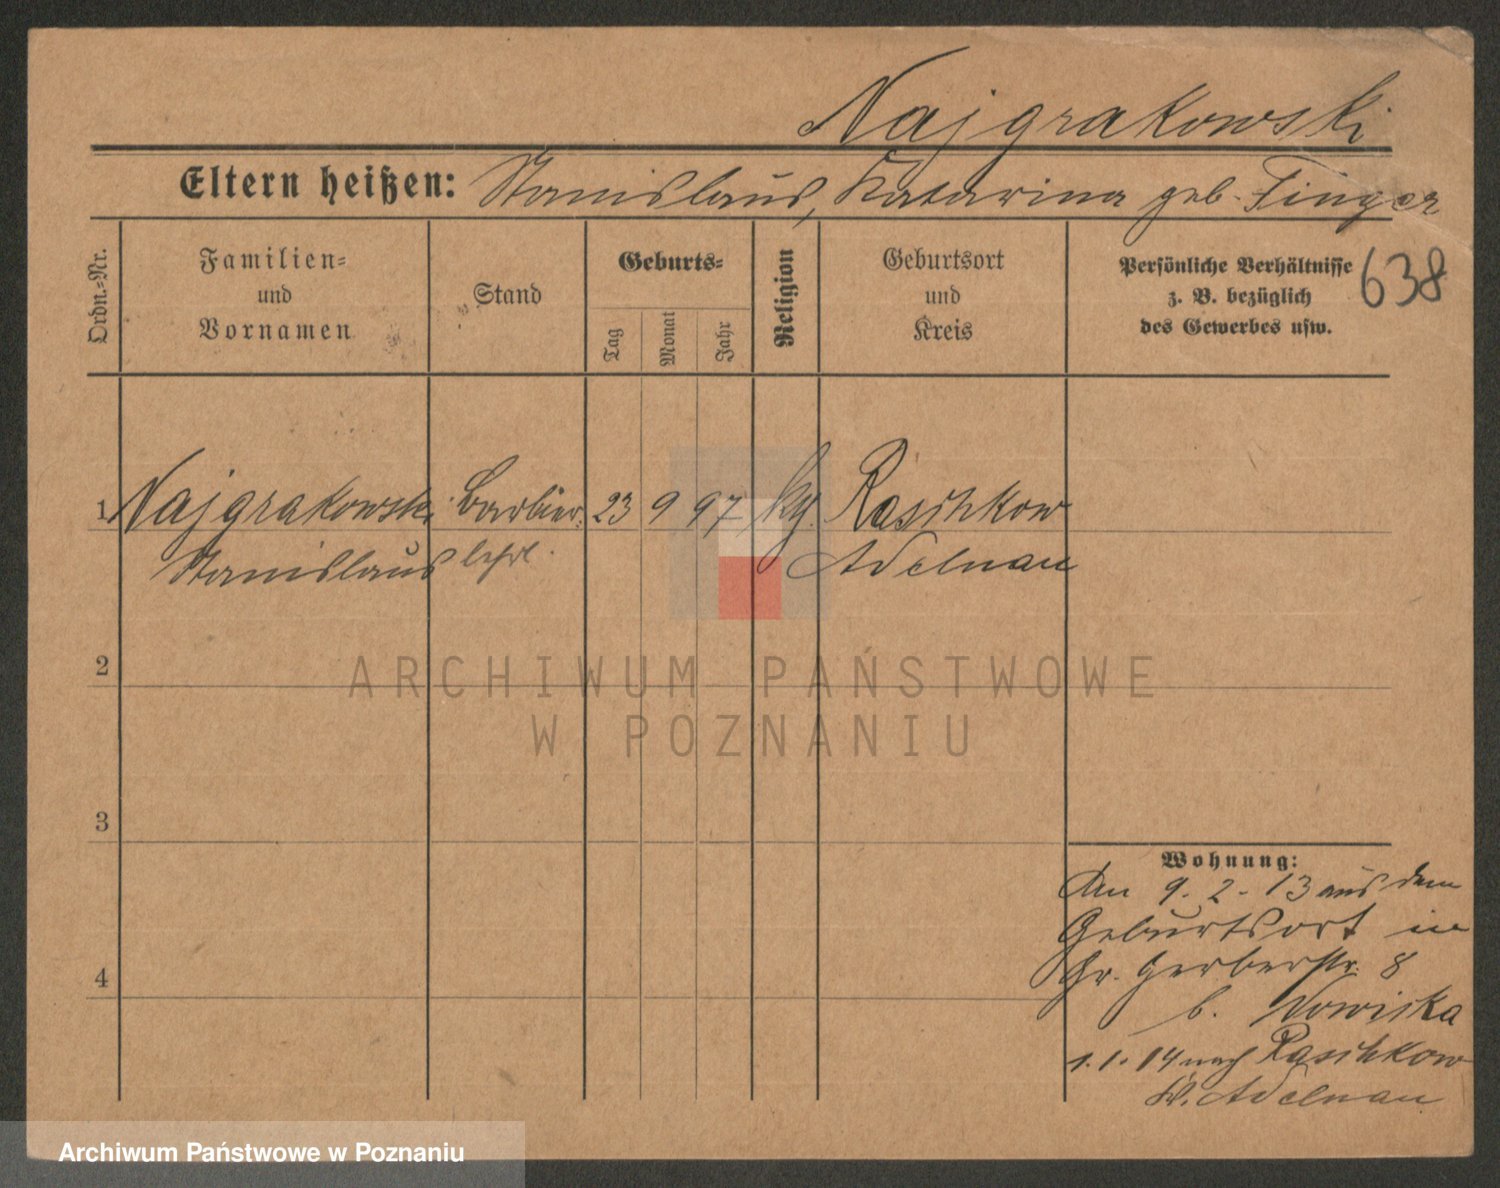 Najgrakowski
Eltern heißen: Stanislaus, Katarina geb. Finger
Ordn.-Nr.
Familien- und Vornamen
Stand
Geburts-
Tag
Monat
Jahr
Religion
Geburtsort und Kreis
Persönliche Verhältnisse
z. B. bezüglich
des Gewerbes usw.
638
1 Najgrakowski Barbier 23 9 97 kg. Raschkow
Stanislaus lehrl. Adelnau
2
ARCHIWUM PAŃSTWOWE
W POZNANIU
3
Wohnung:
Am 9.2.13 aus dem
Geburtsort in
4
Gr. Gerberstr. 8
b. Nowiska
1.1.14 nach Raschkow
Kr. Adelnau
Archiwum Państwowe w Poznaniu